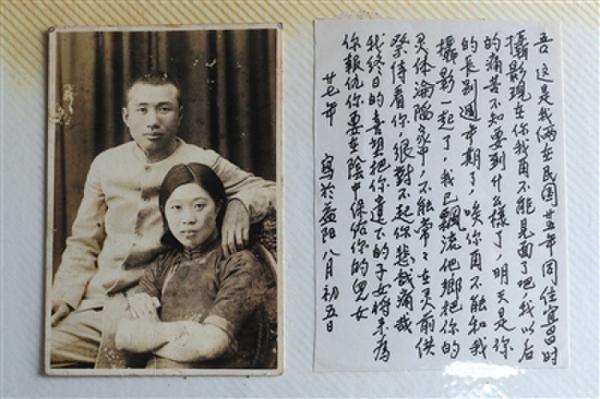 吾 这是我俩在民国廿五年同住宜昌时
攝影现在你我再不能見面了吧,我以后
的痛苦不知要到什么樣了,明天是你
的長别週年期了,唉你再不能和我
攝影一起了,我已飄流他鄉把你的
灵体淪陷家中,不能常々在灵前供
祭侍看你,很對不起你悲哉痛哉
我终日的喜望把你遺下的子女將来為
你報仇你要在陰中保佑你的兒女
廿七年 寫於益阳八月初五日